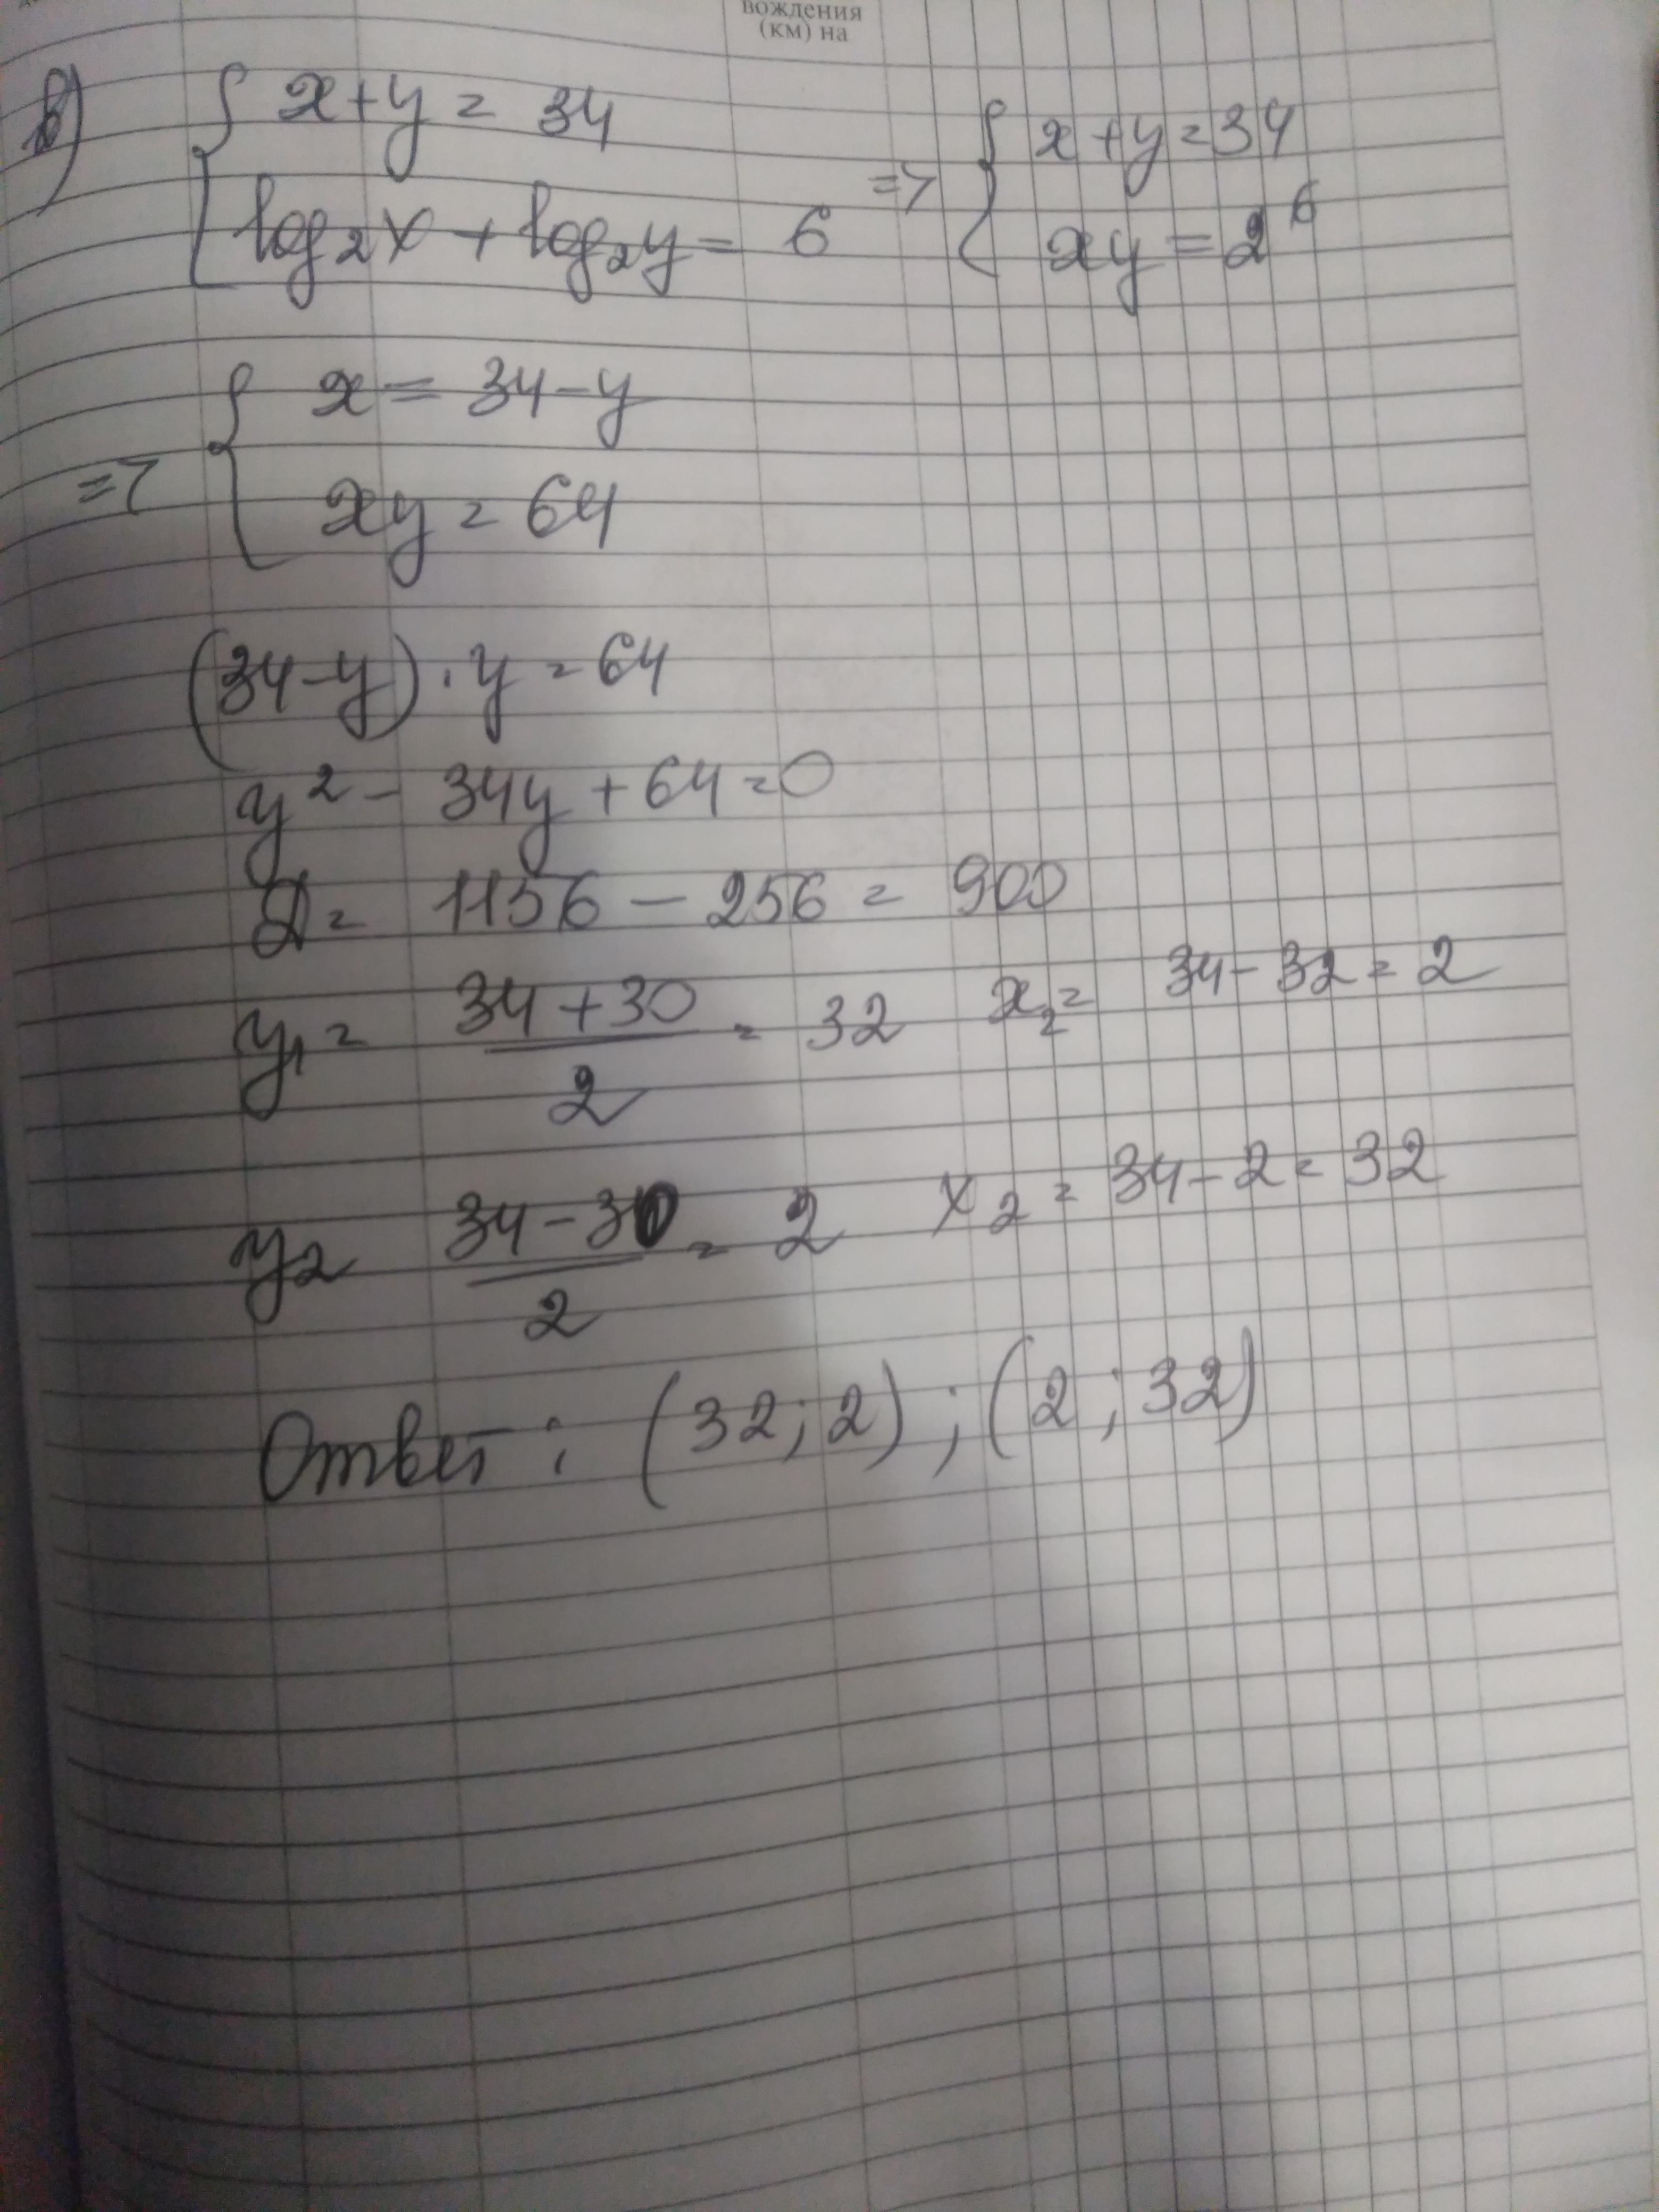 вождения
(км) на
в) { x+y = 34
log₂x + log₂y = 6 => { x+y=34
xy = 2⁶
=> { x = 34-y
xy = 64
(34-y)·y = 64
y² - 34y + 64 = 0
D = 1156 - 256 = 900
y₁ = (34+30)/2 = 32 x₂ = 34-32 = 2
y₂ (34-30)/2 = 2 x₂ = 34-2 = 32
Ответ: (32; 2); (2; 32)